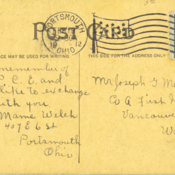 PORTSMOUTH
OHIO
12
POST CARD
MAY BE USED FOR WRITING.
THIS SIDE FOR THE ADDRESS ONLY
member of
P.C.E. and
like to exchange
with you.
Mamie Welch
407 E 6 St
Portsmouth
Ohio
Mr Joseph
Co A First
Vancouve
W